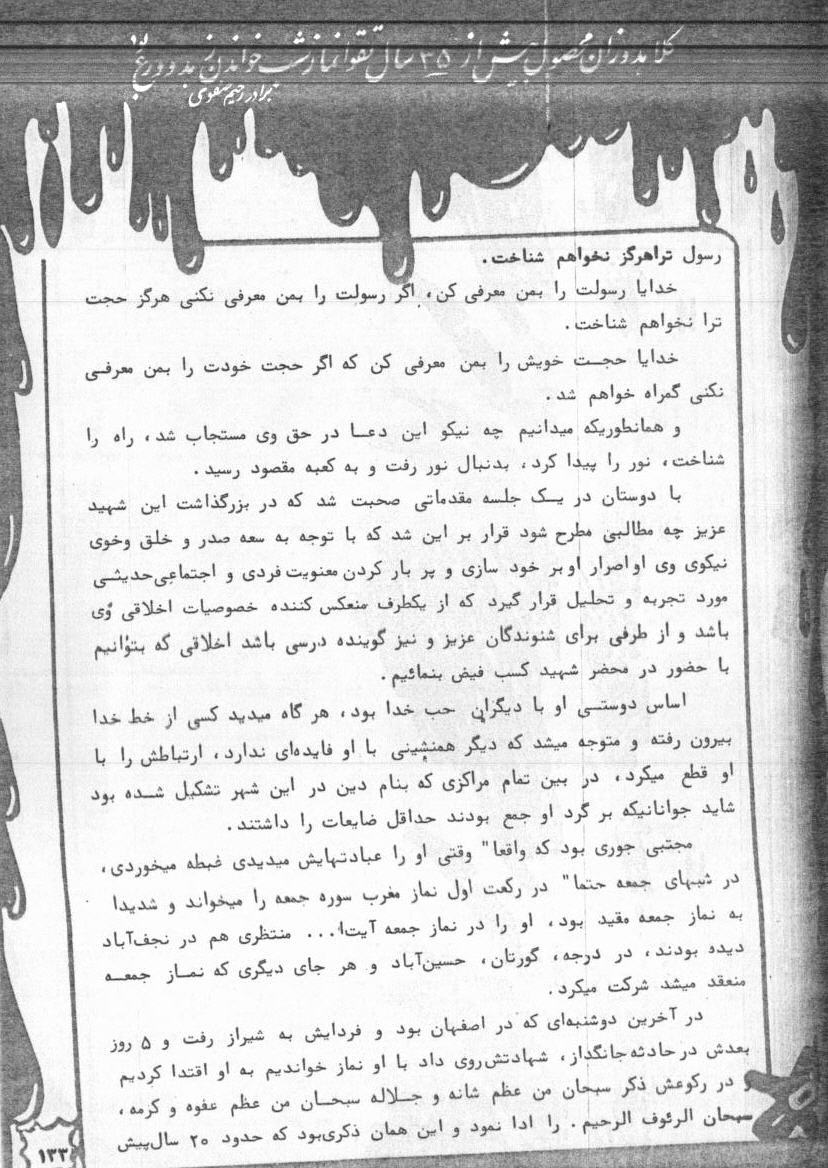 کلاهدوزان محصول بیش از ۳۵ سال تقوا نماز شب خواندن زهد و ورع
برادر رحیم صفوی
رسول تراهرگز نخواهم شناخت.
خدایا رسولت را بمن معرفی کن، اگر رسولت را بمن معرفی نکنی هرگز حجت
ترا نخواهم شناخت.
خدایا حجت خویش را بمن معرفی کن که اگر حجت خودت را بمن معرفی
نکنی گمراه خواهم شد.
و همانطوریکه میدانیم چه نیکو این دعا در حق وی مستجاب شد، راه را
شناخت، نور را پیدا کرد، بدنبال نور رفت و به کعبه مقصود رسید.
با دوستان در یک جلسه مقدماتی صحبت شد که در بزرگذاشت این شهید
عزیز چه مطالبی مطرح شود قرار بر این شد که با توجه به سعه صدر و خلق وخوی
نیکوی وی او اصرار او بر خود سازی و پر بار کردن معنویت فردی و اجتماعی حدیثی
مورد تجربه و تحلیل قرار گیرد که از یکطرف منعکس کننده خصوصیات اخلاقی وی
باشد و از طرفی برای شنوندگان عزیز و نیز گوینده درسی باشد اخلاقی که بتوانیم
با حضور در محضر شهید کسب فیض بنمائیم.
اساس دوستی او با دیگران حب خدا بود، هر گاه میدید کسی از خط خدا
بیرون رفته و متوجه میشد که دیگر همنشینی با او فایده‌ای ندارد، ارتباطش را با
او قطع میکرد، در بین تمام مراکزی که بنام دین در این شهر تشکیل شده بود
شاید جوانانیکه بر گرد او جمع بودند حداقل ضایعات را داشتند.
مجتبی جوری بود که واقعا" وقتی او را عبادتهایش میدیدی غبطه میخوردی،
در شبهای جمعه حتما" در رکعت اول نماز مغرب سوره جمعه را میخواند و شدیدا
به نماز جمعه مقید بود، او را در نماز جمعه آیت‌ا... منتظری هم در نجف‌آباد
دیده بودند، در درجه، گورتان، حسین‌آباد و هر جای دیگری که نماز جمعه
منعقد میشد شرکت میکرد.
در آخرین دوشنبه‌ای که در اصفهان بود و فردایش به شیراز رفت و ۵ روز
بعدش در حادثه جانگداز، شهادتش روی داد با او نماز خواندیم به او اقتدا کردیم
و در رکوعش ذکر سبحان من عظم شانه و جلاله سبحان من عظم عفوه و کرمه،
سبحان الرئوف الرحیم. را ادا نمود و این همان ذکری بود که حدود ۲۰ سال پیش
۱۳۳